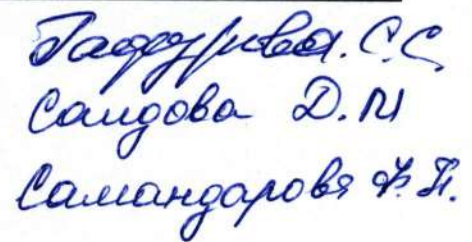 Гаффурова С.С.
Саидова Д.М
Самандарова Ф.П.